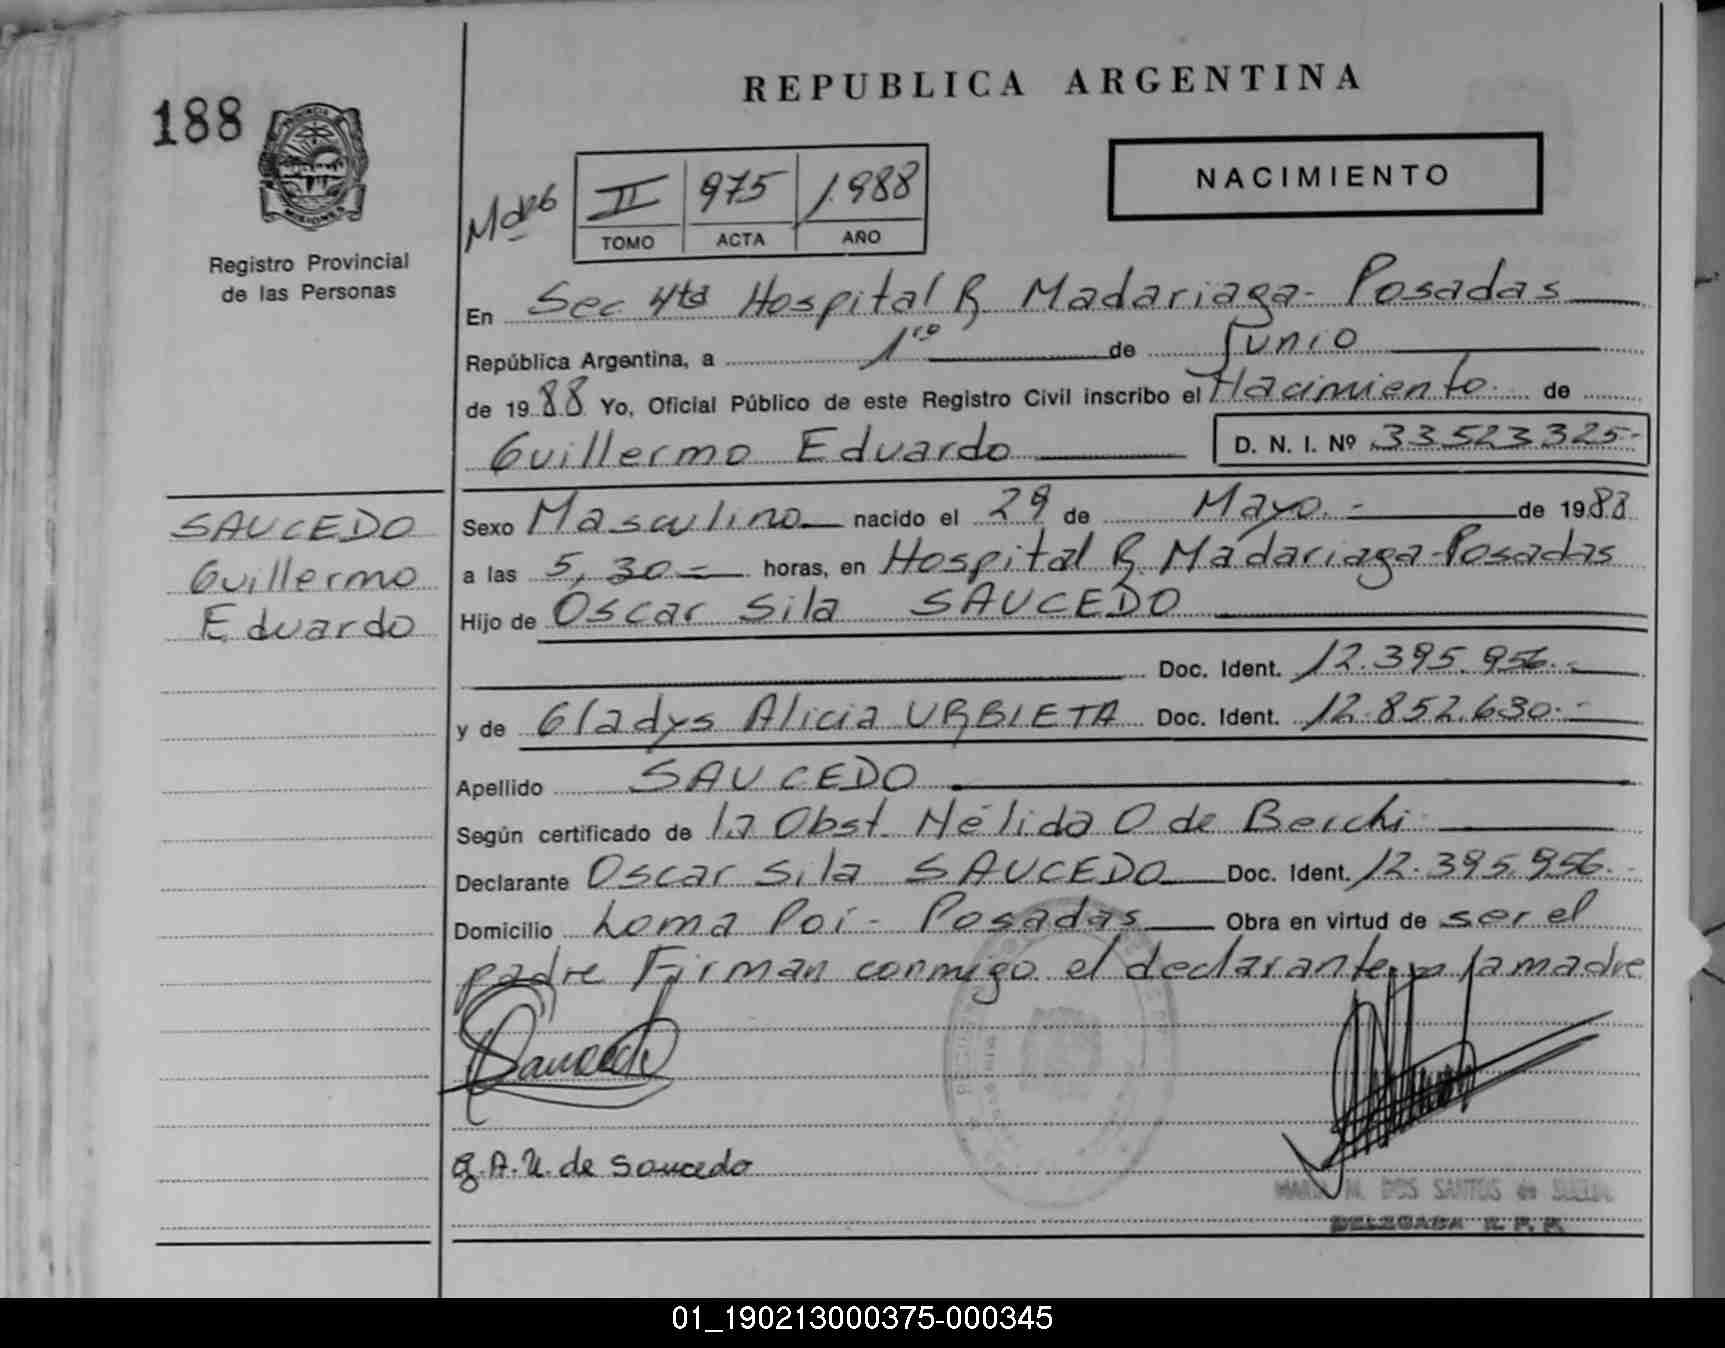 REPUBLICA ARGENTINA
188
PROVINCIA
MISIONES
Registro Provincial
de las Personas
NACIMIENTO
II 975 1.988
TOMO ACTA AÑO
En Sec 4ta Hospital R Madariaga - Posadas
República Argentina, a 1ro de Junio
de 1988 Yo, Oficial Público de este Registro Civil inscribo el Nacimiento de
Guillermo Eduardo D. N. I. Nº 33523325-
SAUCEDO
Guillermo
Eduardo
Sexo Masculino nacido el 29 de Mayo.- de 1988
a las 5,30= horas, en Hospital R Madariaga-Posadas
Hijo de Oscar Sila SAUCEDO
Doc. Ident. 12.395.956.-
y de Gladys Alicia URBIETA Doc. Ident. 12.852.630.-
Apellido SAUCEDO
Según certificado de la Obst Nélida O de Berchi
Declarante Oscar Sila SAUCEDO Doc. Ident. 12.395.956.-
Domicilio Loma Poi - Posadas Obra en virtud de ser el
padre Firman conmigo el declarante y la madre
Saucedo
G.A.U. de Saucedo
M. DOS SANTOS de
DELEGADA R. P. P.
01_190213000375-000345